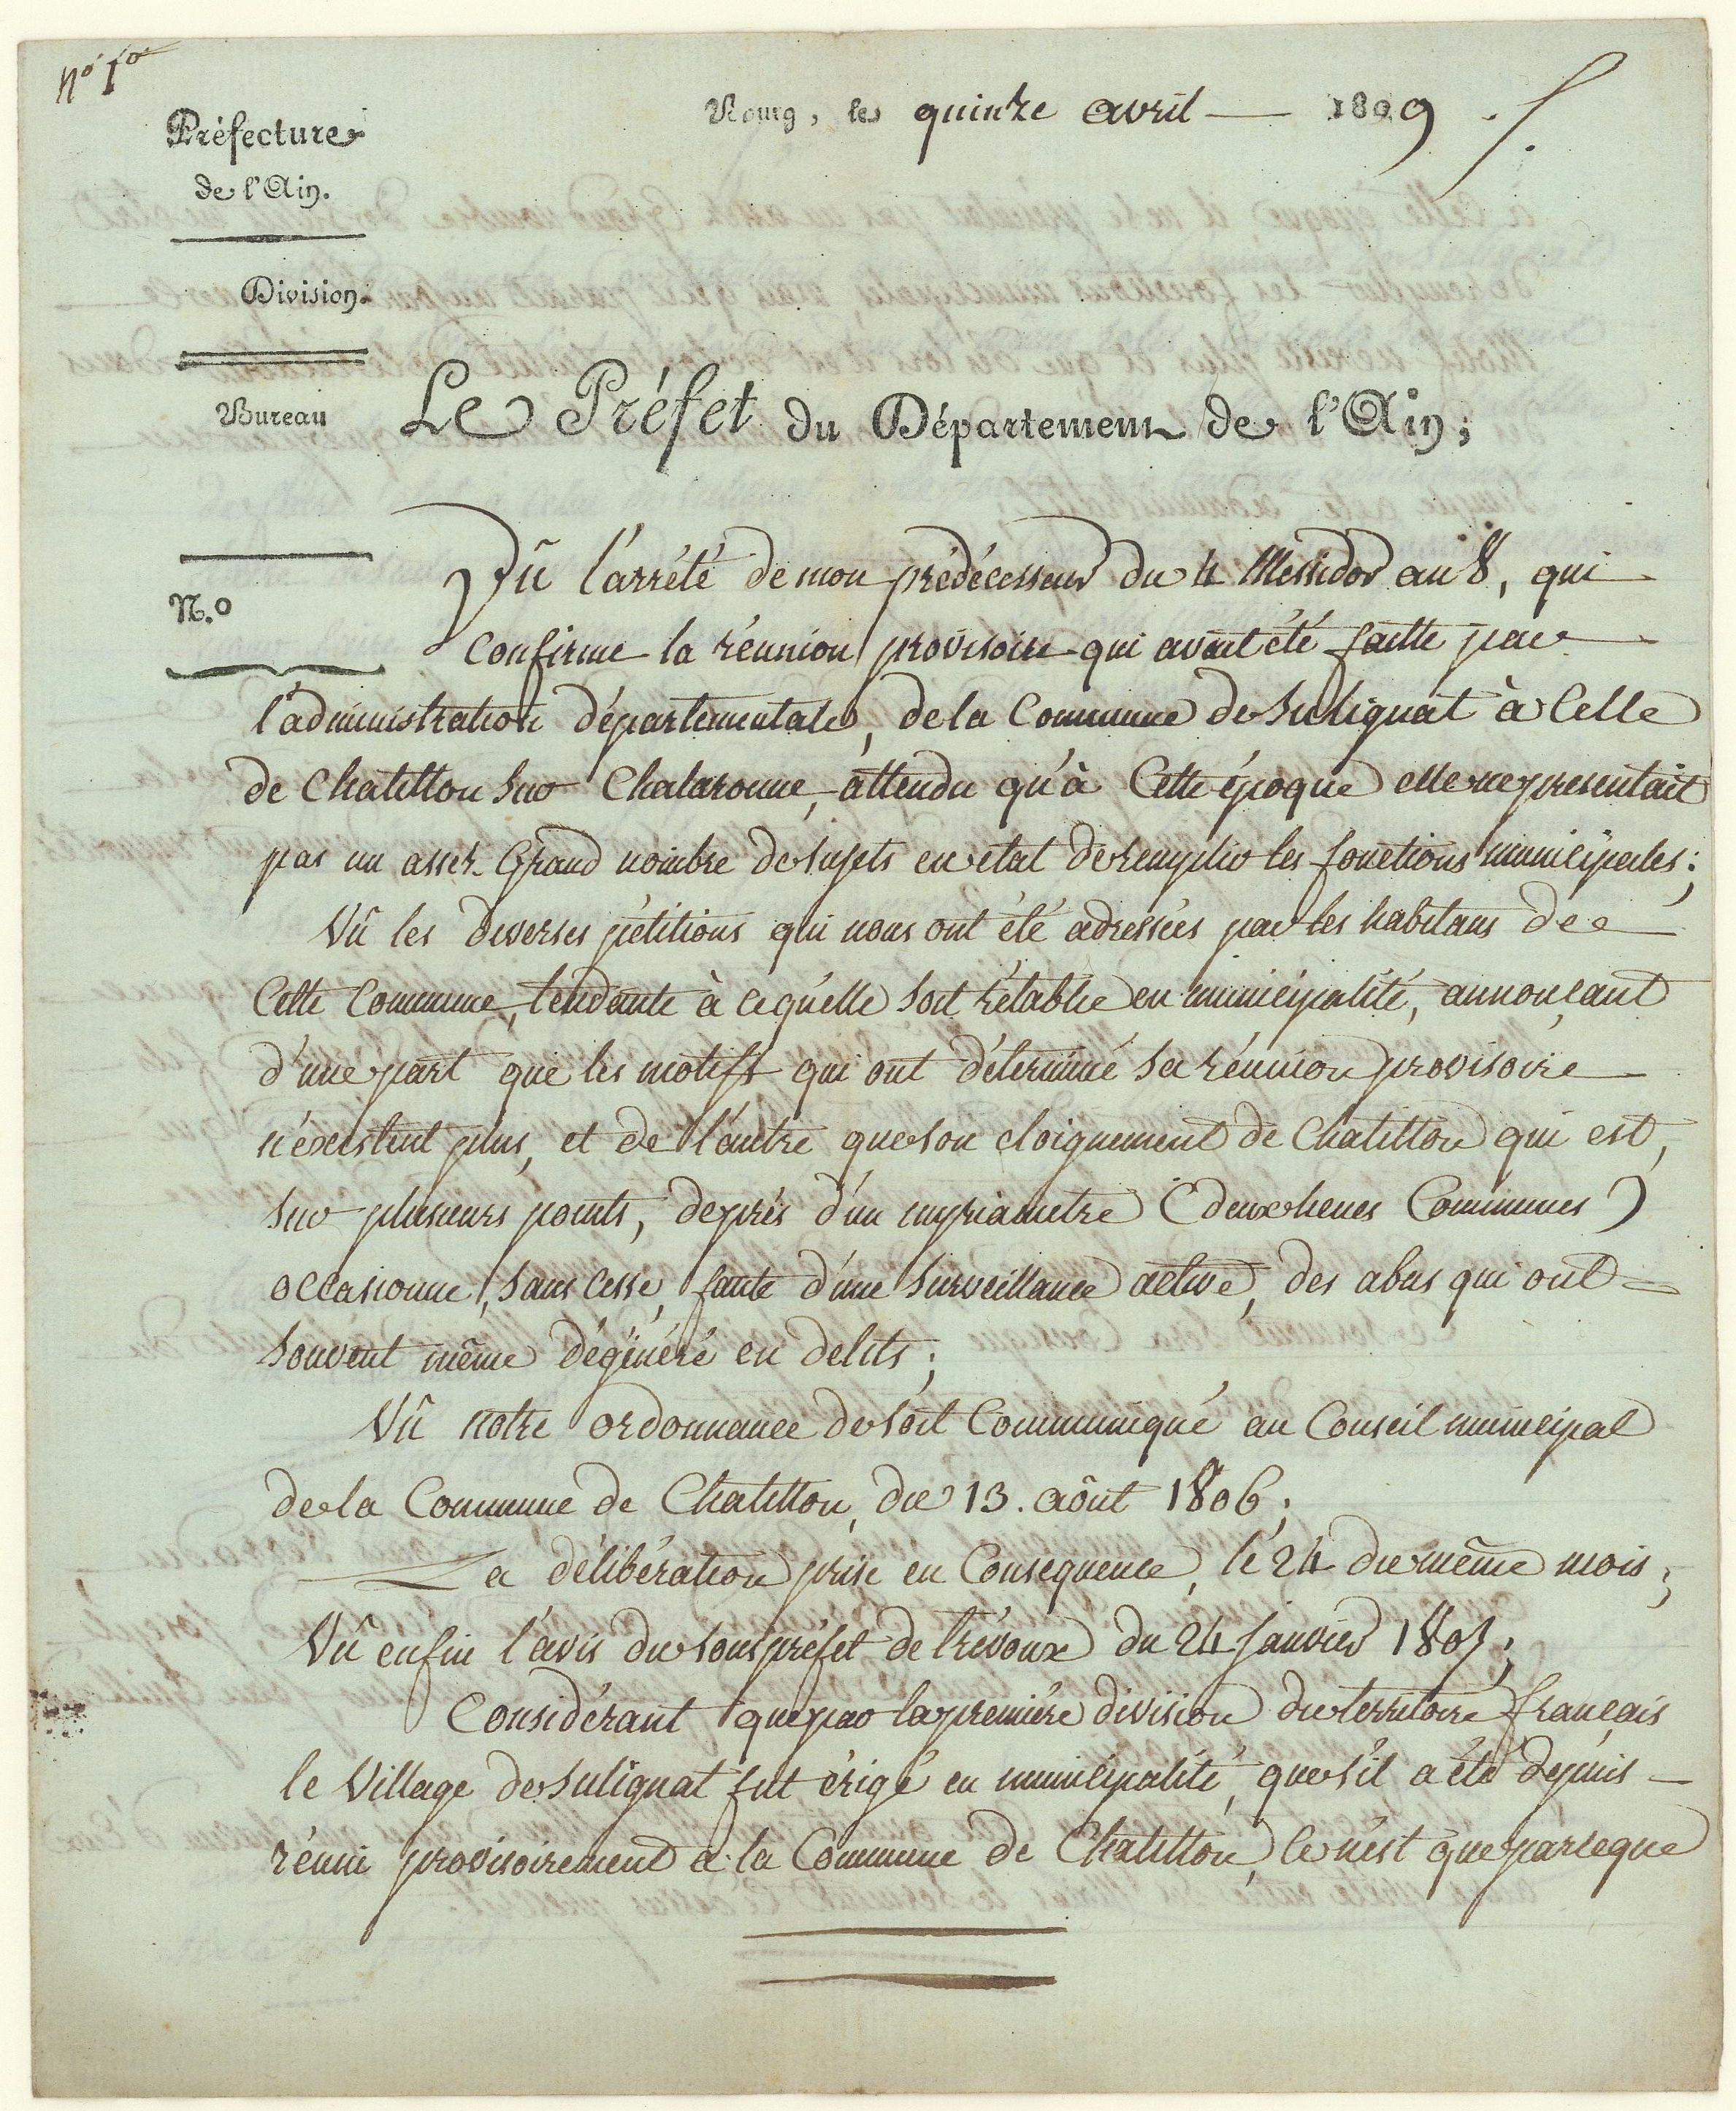 N.o 1.er
Bourg, le quinze avril — 1809.
Préfecture
de l'Ain.
Division.
Bureau
Le Préfet du Département de l'Ain;
N.o
Vû l'arrêté de mon prédécesseur du 4 Messidor an 8, qui
confirme la réunion provisoire qui avait été faitte par
l'administration départementale, de la Commune de Sulignat à Celle
de Chatillon sur Chalaronne, attendu qu'à Cette époque elle ne presentait
pas un assez Grand nombre de sujets en état de remplir les fonctions municipales;
Vû les diverses pétitions qui nous ont été adressées par les habitans de
Cette Commune, tendante à ce qu'elle soit rétablie en municipalité, annonçant
d'une part que les motifs qui ont déterminé sa réunion provisoire
n'éxistent plus, et de l'autre que son eloignement de Chatillon qui est,
sur plusieurs points, de près d'un myriametre (deux lieues Communes)
occasionne, sans cesse, faute d'une surveillance active, des abus qui ont
souvent même dégénéré en delits;
Vû notre ordonnance de soit Communiqué au Conseil municipal
de la Commune de Chatillon, du 13. aôut 1806;
La délibération prise en Consequence, le 24 du même mois;
Vû enfin l'avis du sous préfet de Trévoux du 24 Janvier 1807;
Considérant que par la première division du territoire français
le Village de Sulignat fut érigé en municipalité, que s'il a été depuis
réuni provisoirement a la Commune de Chatillon, Ce n'est que parceque